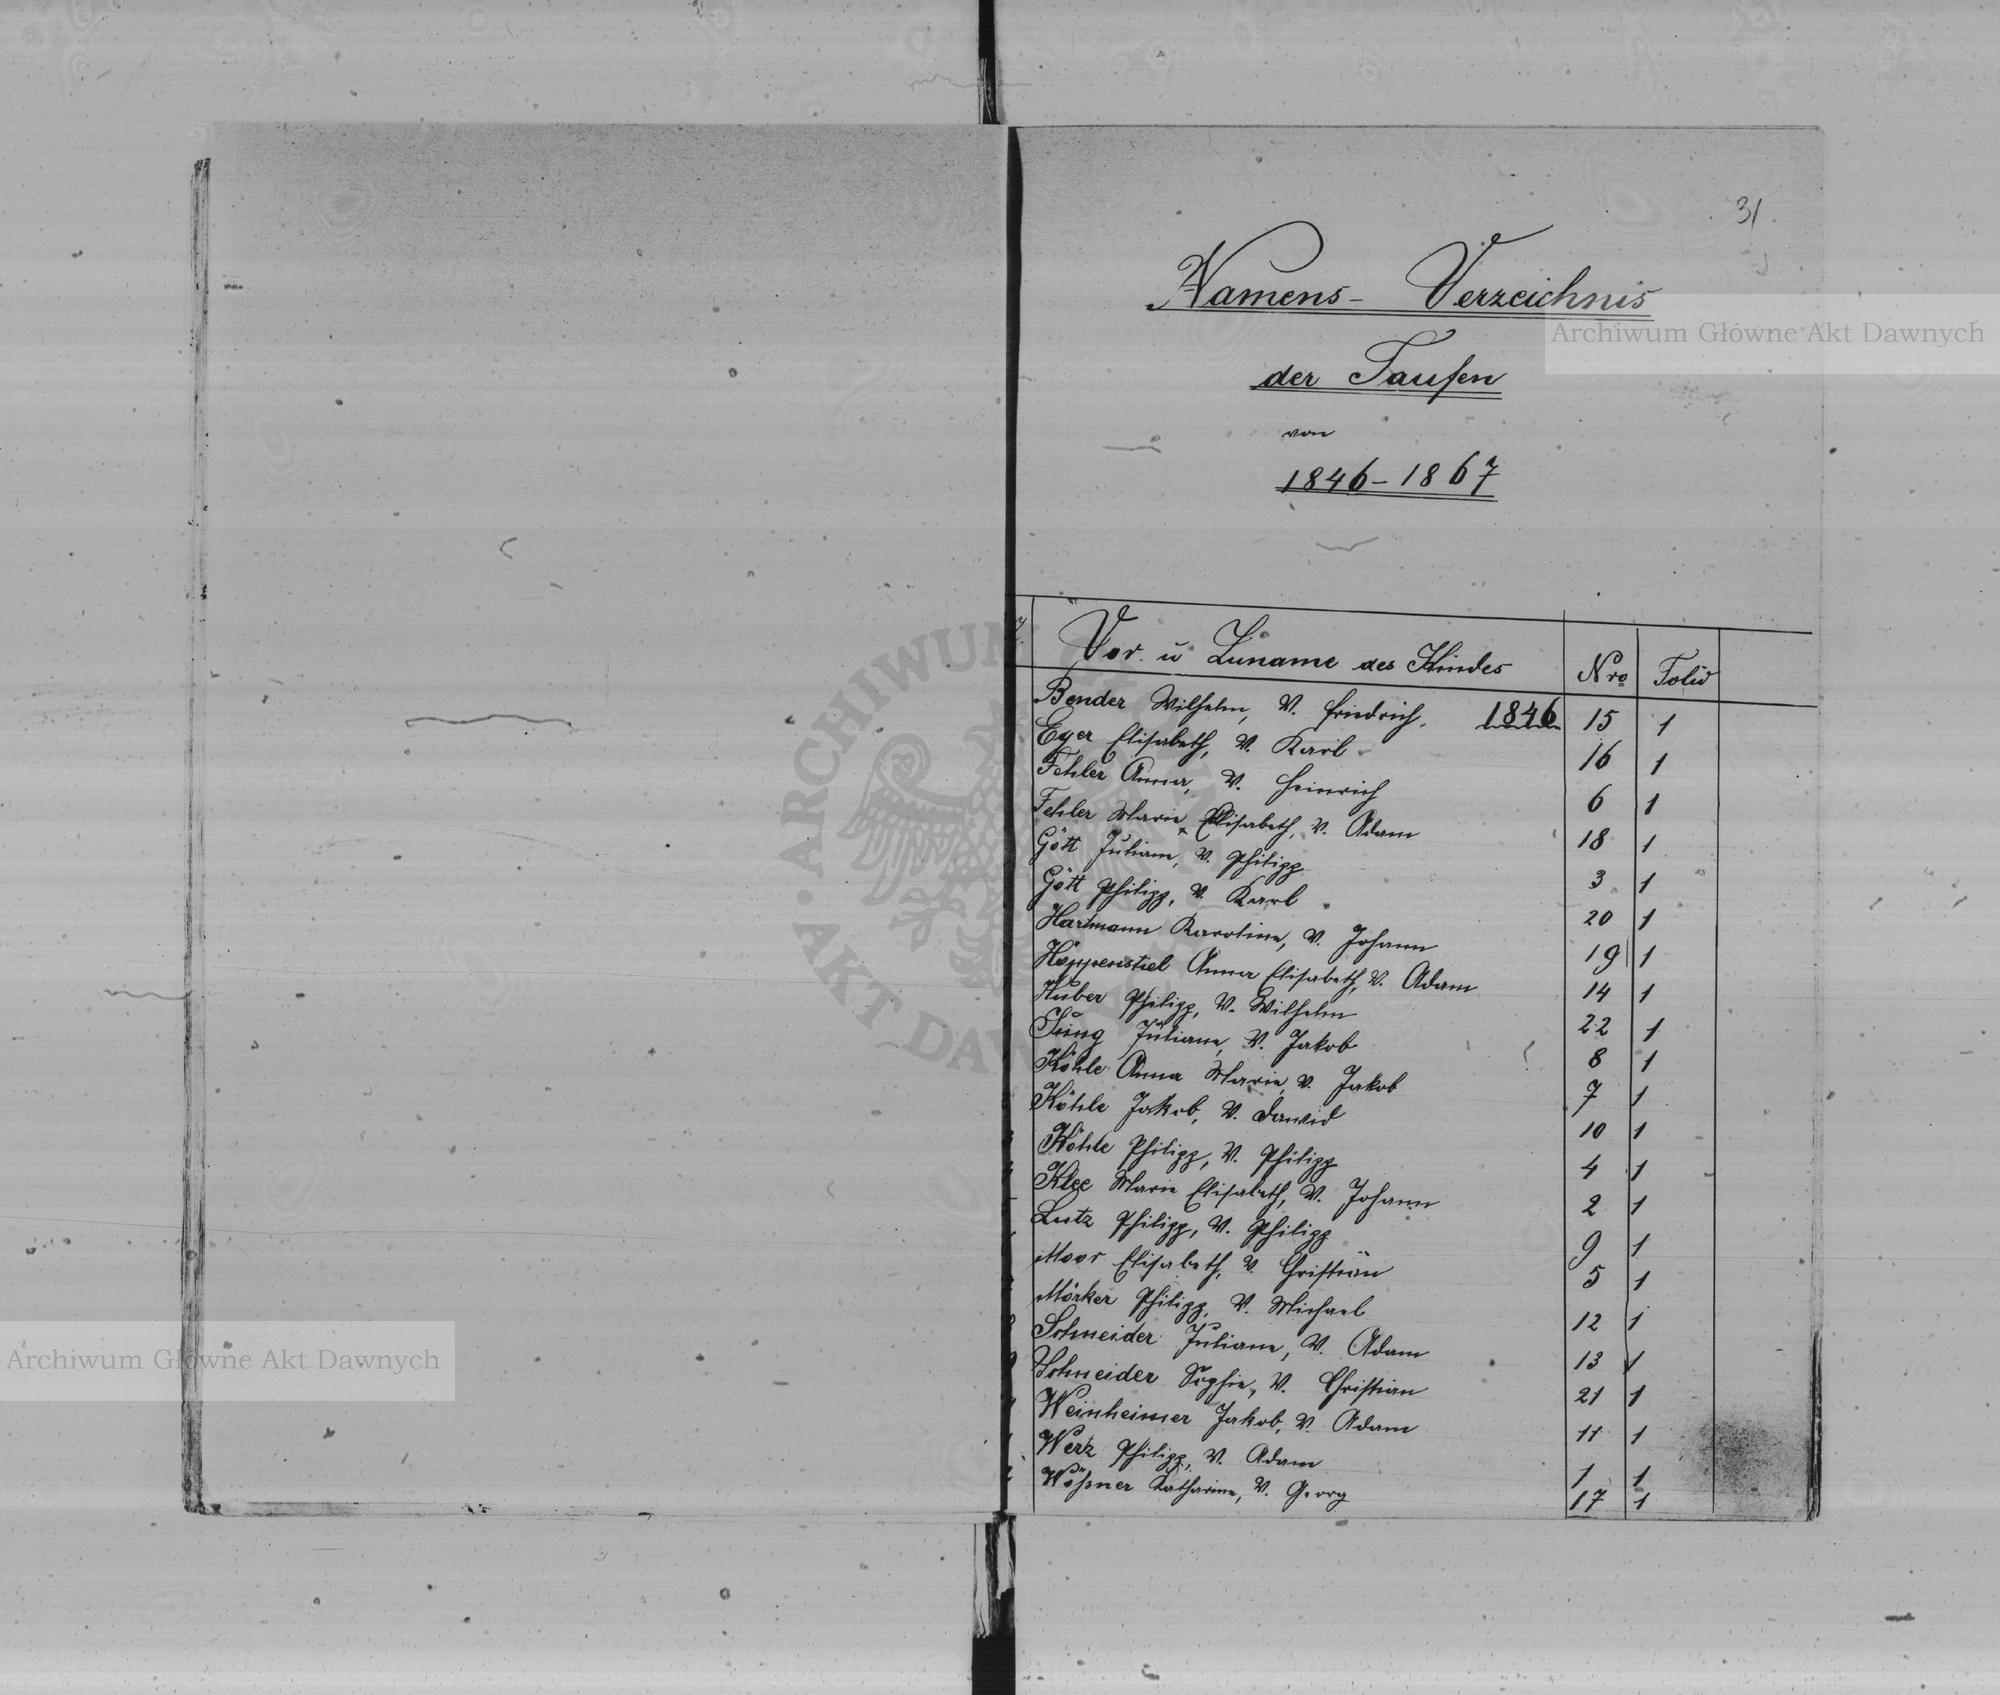 31
Namens- Verzeichnis
Archiwum Główne Akt Dawnych
der Taufen
von
1846-1867
Vor. u Zuname des Kindes Nro Folio
Bender Wilhelm, V. Friedrich. 1846 15 1
Eyer Elisabeth, V. Karl 16 1
Fehler Anna, V. Heinrich 6 1
Fehler Marie Elisabeth, V. Adam 18 1
Gött Juliana, V. Philipp 3 1
Gött Philipp, V. Karl 20 1
Hartmann Karoline, V. Johann 19 1
Höppenstiel Anna Elisabeth, V. Adam 14 1
Huber Philipp, V. Wilhelm 22 1
Jung Juliane, V. Jakob 8 1
Köhle Anna Marie, V. Jakob 7 1
Köhle Jakob, V. Dawid 10 1
Köhle Philipp, V. Philipp 4 1
Klee Marie Elisabeth, V. Johann 2 1
Lutz Philipp, V. Philipp 9 1
Moor Elisabeth, V. Christian 5 1
Mörker Philipp, V. Michael 12 1
Schneider Juliane, V. Adam 13 1
Schneider Sophie, V. Christian 21 1
Weinheimer Jakob, V. Adam 11 1
Werz Philipp, V. Adam 1 1
Wößner Katharine, V. Georg 17 1
ARCHIWUM
AKT DAW
Archiwum Główne Akt Dawnych